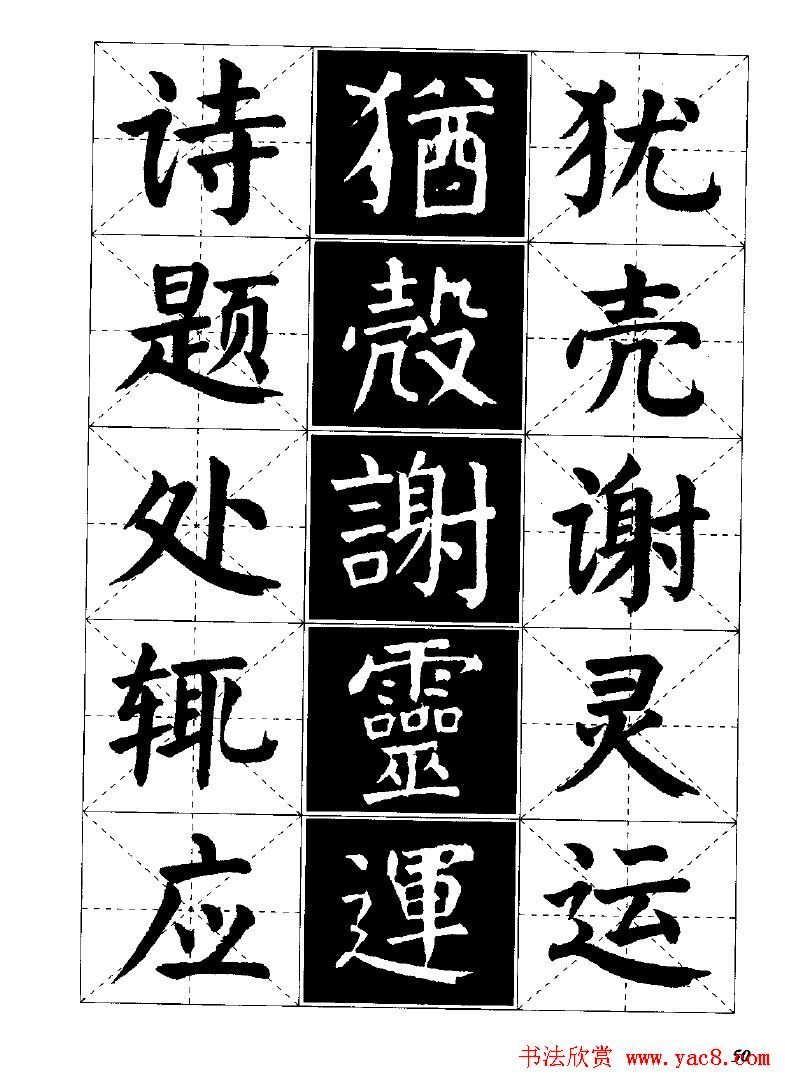 犹壳谢灵运
猶殼謝靈運
诗题处辄应
50
书法欣赏 www.yac8.com